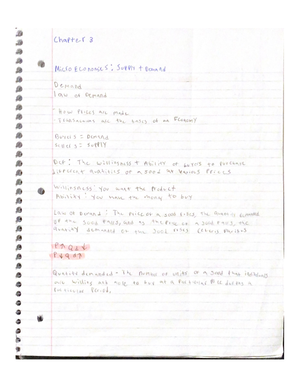 Chapter 3
Micro Economics; Supply + Demand
Demand
Law of Demand
- How Prices are made
- are the basis of an Economy
Buyers: Demand
Sellers: Supply
Def: The Willingness + Ability of buyers to Purchase
different quantities of a Good at Various Prices
Willingness: You want the Product
Ability: You have the money to buy
Law of Demand: The Price of a Good rises, the quantity demand
of the Good falls, and as the Price of a Good falls, the
quantity demanded of the Good rises Ceteris Paribus.
P↑ Qd↓
P↓ Qd↑
Quantity demanded - The number of units of a Good that
are willing and able to buy at a Particular Price
Period.